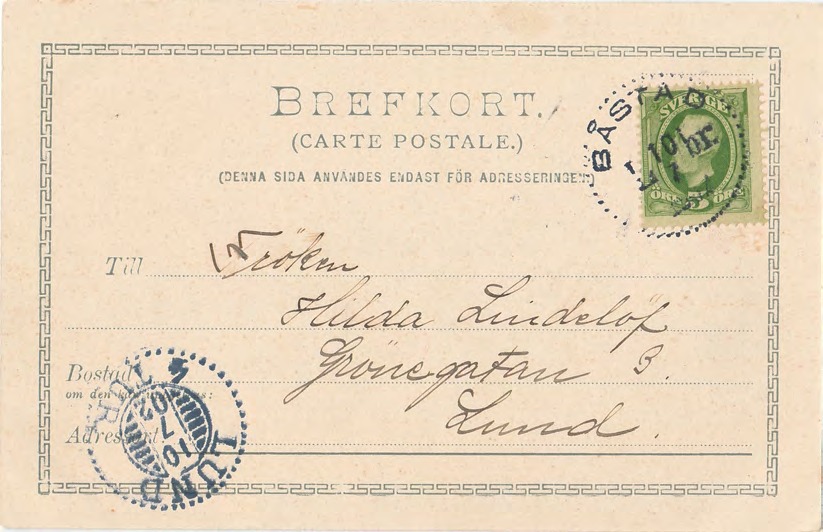 BREFKORT.
(CARTE POSTALE.)
(DENNA SIDA ANVÄNDES ENDAST FÖR ADRESSERINGEN.)
BÅSTAD
10 7
SVERIGE
ÖRE 5 ÖRE
Till Fröken
Hilda Lindelöf
Bostad Grönegatan 3.
om den kan
Adressort Lund.
LUND
10 7 02
4 TUR